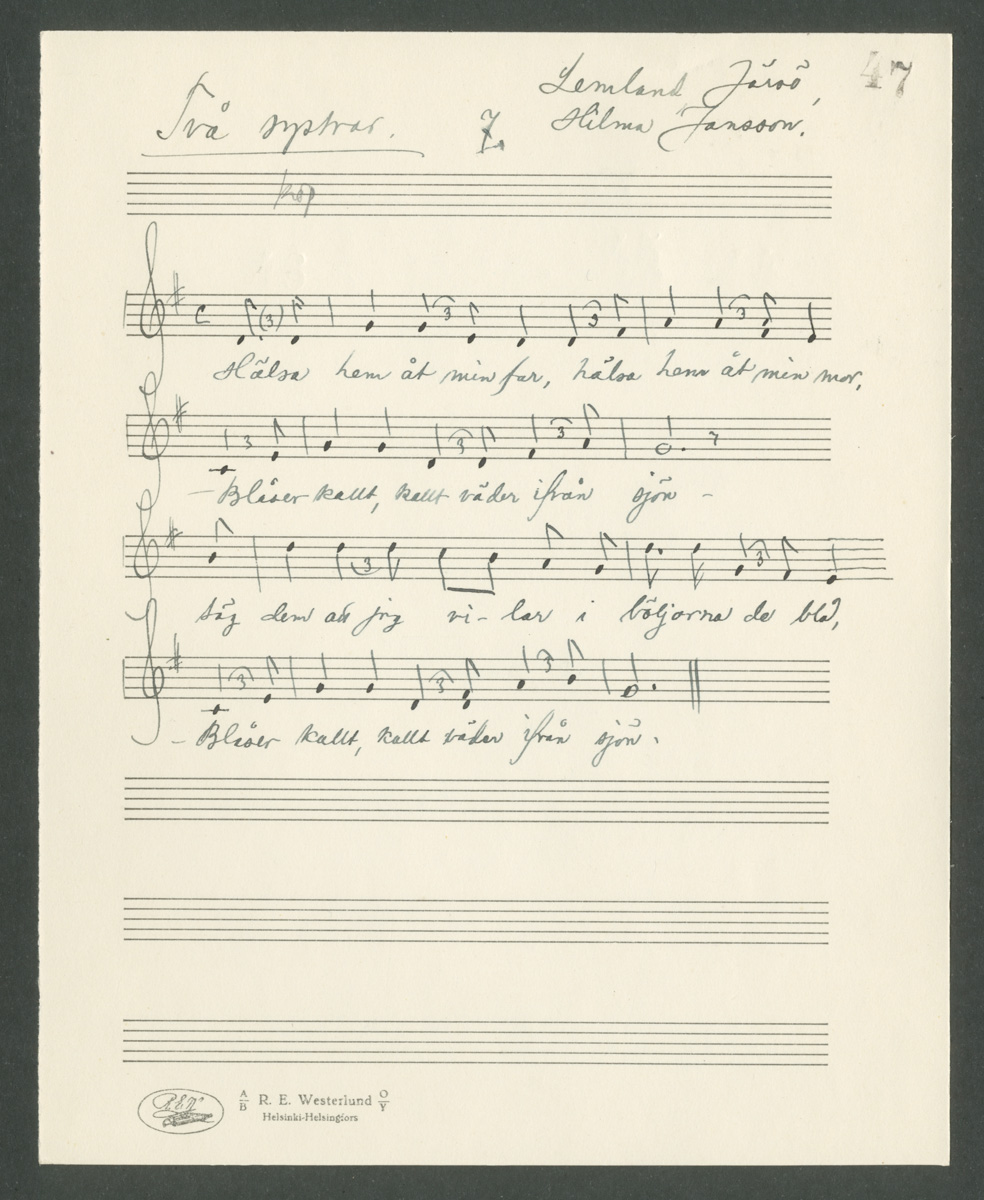 47
Lemland Järsö,
Två systrar. 7. Hilma Jansson.
kop
Hälsa hem åt min far, hälsa hem åt min mor,
– Blåser kallt, kallt väder ifrån sjön –
säg dem att jag vi-lar i böljorna de blå,
– Blåser kallt, kallt väder ifrån sjön.
A/B R. E. Westerlund O/Y
Helsinki-Helsingfors